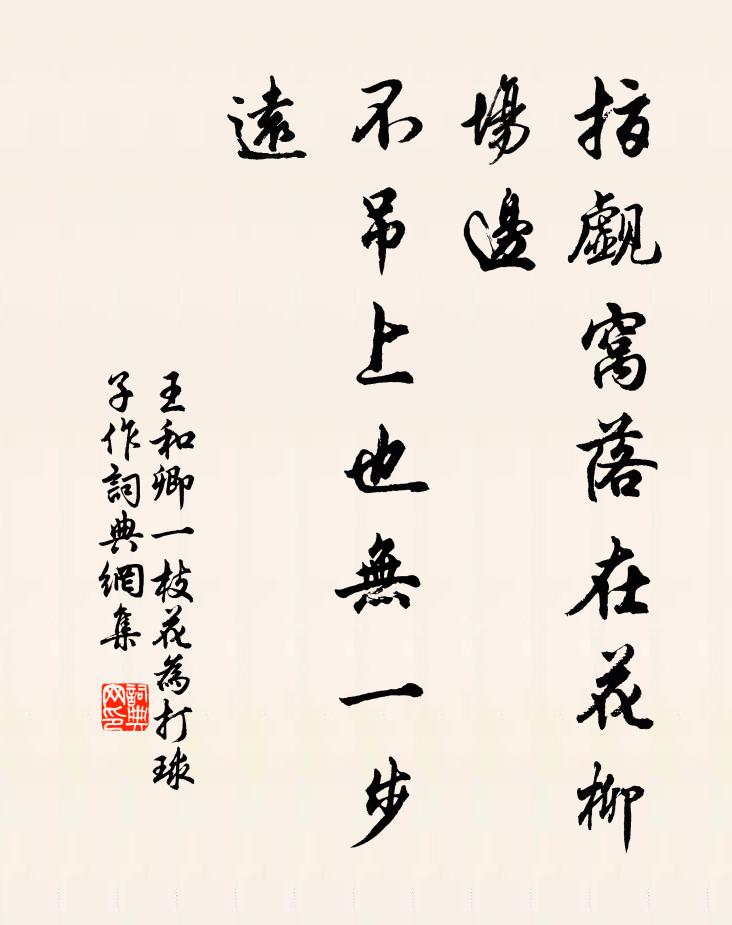 指覷窩落在花柳
場邊
不吊上也無一步
遠
王和卿一枝花為打球
子作詞典網集
詞典
网印